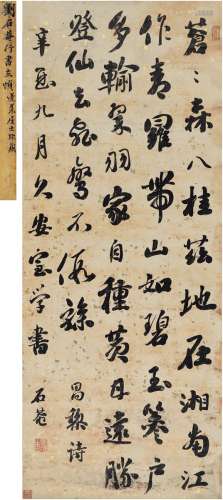 劉石菴行書立幀
蒼〻森八桂茲地在湘南江
作青羅帶山如碧玉篸戶
多輸翠羽家自種黃甘遠勝
登仙去飛鸞不假驂 昌黎詩
辛亥九月久安室學書 石菴